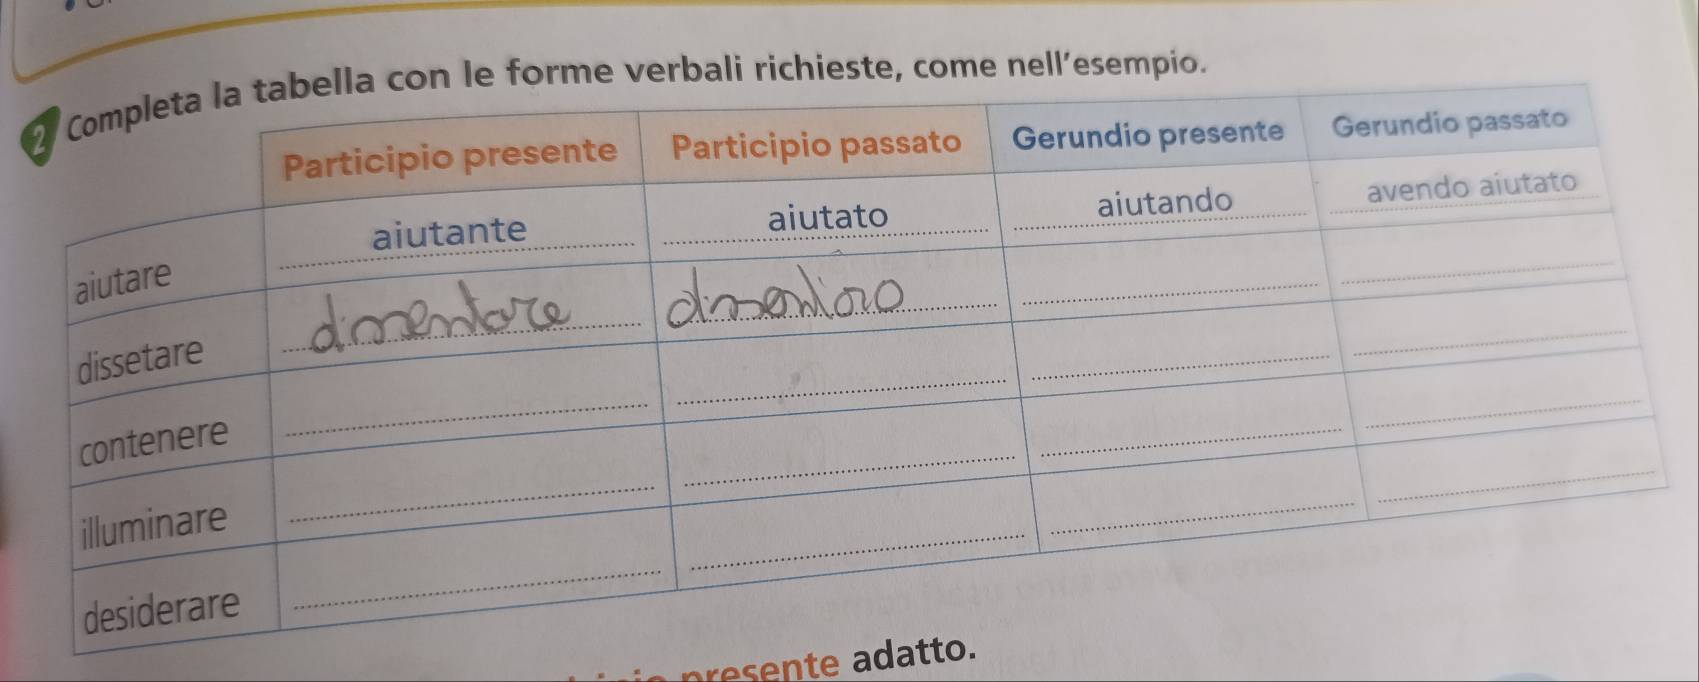 2 Completa la tabella con le forme verbali richieste, come nell'esempio.
Participio presente Participio passato Gerundio presente Gerundio passato
aiutare aiutante aiutato aiutando avendo aiutato
dissetare
contenere
illuminare
desiderare
presente adatto.